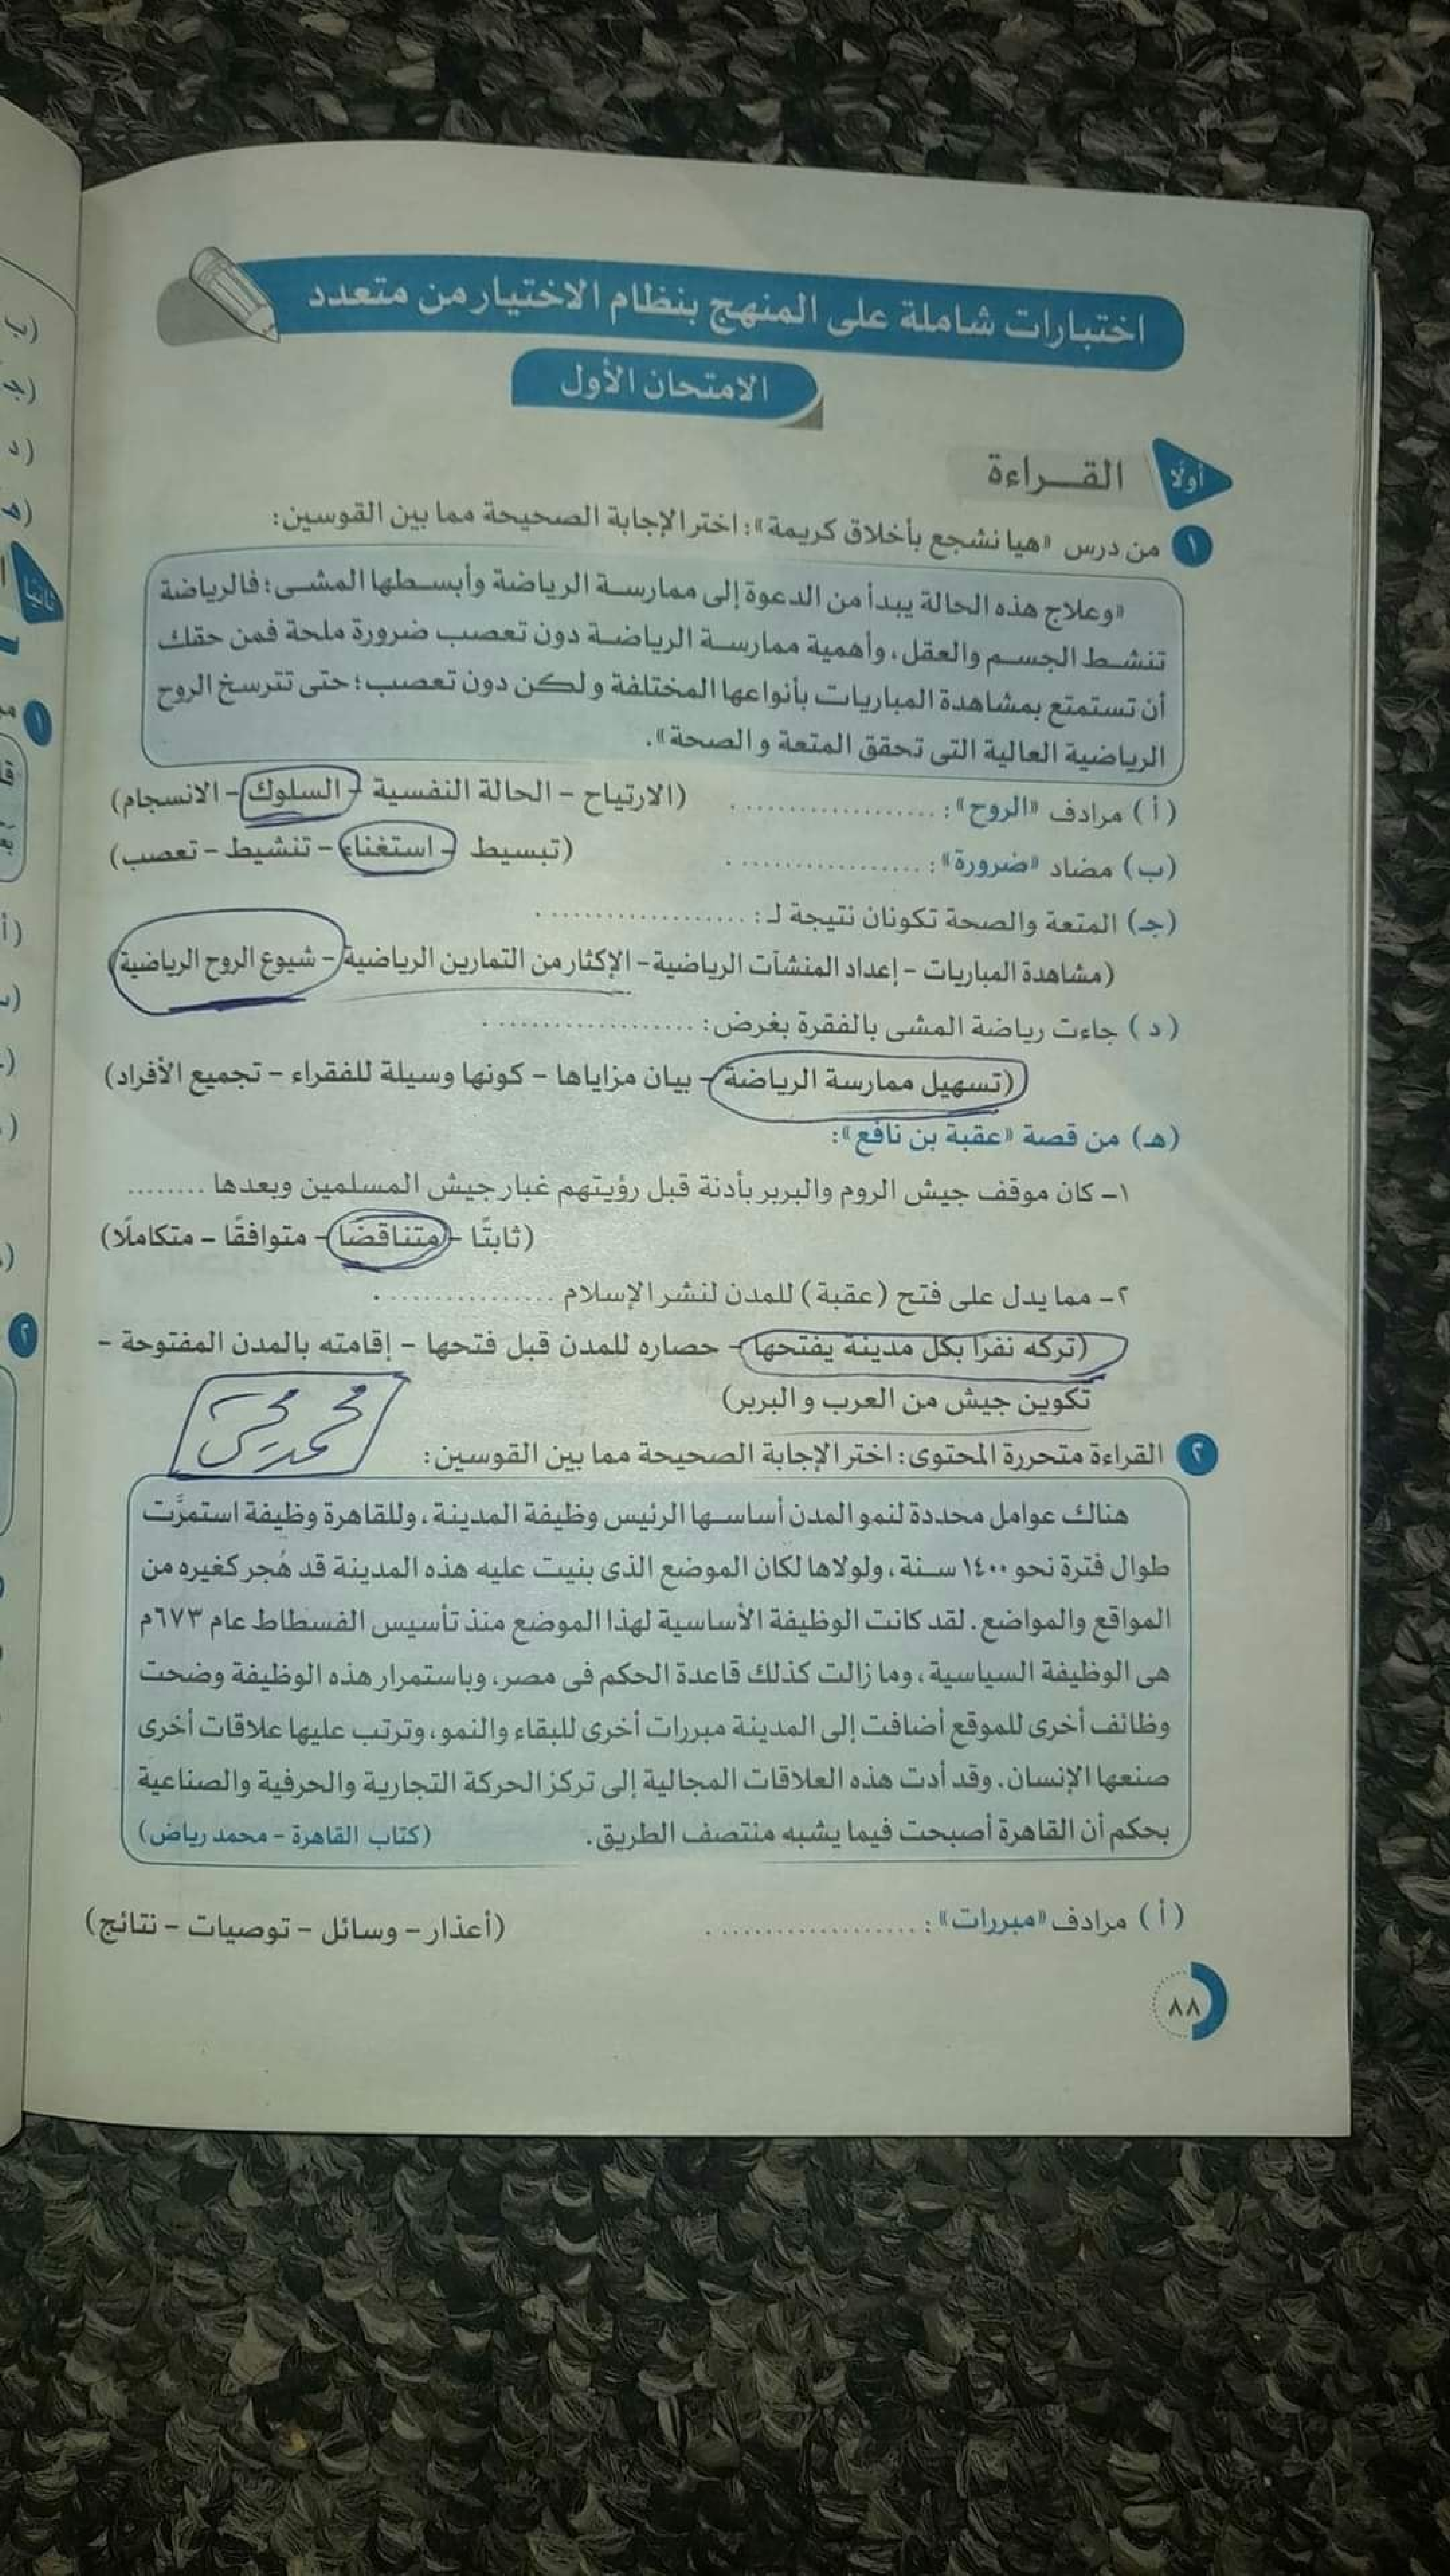 اختبارات شاملة على المنهج بنظام الاختيار من متعدد
الامتحان الأول
أولًا القـــراءة
١ من درس «هيا نشجع بأخلاق كريمة»: اختر الإجابة الصحيحة مما بين القوسين:
«وعلاج هذه الحالة يبدأ من الدعوة إلى ممارسة الرياضة وأبسطها المشى؛ فالرياضة
تنشط الجسم والعقل، وأهمية ممارسة الرياضة دون تعصب ضرورة ملحة فمن حقك
أن تستمتع بمشاهدة المباريات بأنواعها المختلفة ولكن دون تعصب؛ حتى تترسخ الروح
الرياضية العالية التى تحقق المتعة والصحة».
(أ) مرادف «الروح»: .................... (الارتياح - الحالة النفسية - السلوك - الانسجام)
(ب) مضاد «ضرورة»: .................... (تبسيط - استغناء - تنشيط - تعصب)
(جـ) المتعة والصحة تكونان نتيجة لـ: ....................
(مشاهدة المباريات - إعداد المنشآت الرياضية - الإكثار من التمارين الرياضية - شيوع الروح الرياضية)
(د) جاءت رياضة المشى بالفقرة بغرض: ....................
(تسهيل ممارسة الرياضة - بيان مزاياها - كونها وسيلة للفقراء - تجميع الأفراد)
(هـ) من قصة «عقبة بن نافع»:
١- كان موقف جيش الروم والبربر بأدنة قبل رؤيتهم غبار جيش المسلمين وبعدها ........
(ثابتًا - متناقضا - متوافقًا - متكاملًا)
٢- مما يدل على فتح (عقبة) للمدن لنشر الإسلام ................
(تركه نفرًا بكل مدينة يفتحها - حصاره للمدن قبل فتحها - إقامته بالمدن المفتوحة -
تكوين جيش من العرب والبربر)
محمد
٢ القراءة متحررة المحتوى: اختر الإجابة الصحيحة مما بين القوسين:
هناك عوامل محددة لنمو المدن أساسها الرئيس وظيفة المدينة، وللقاهرة وظيفة استمرَّت
طوال فترة نحو ١٤٠٠ سنة، ولولاها لكان الموضع الذى بنيت عليه هذه المدينة قد هُجر كغيره من
المواقع والمواضع. لقد كانت الوظيفة الأساسية لهذا الموضع منذ تأسيس الفسطاط عام ٦٧٣م
هى الوظيفة السياسية، وما زالت كذلك قاعدة الحكم فى مصر، وباستمرار هذه الوظيفة وضحت
وظائف أخرى للموقع أضافت إلى المدينة مبررات أخرى للبقاء والنمو، وترتب عليها علاقات أخرى
صنعها الإنسان. وقد أدت هذه العلاقات المجالية إلى تركز الحركة التجارية والحرفية والصناعية
بحكم أن القاهرة أصبحت فيما يشبه منتصف الطريق. (كتاب القاهرة - محمد رياض)
(أ) مرادف «مبررات»: .................... (أعذار - وسائل - توصيات - نتائج)
٨٨